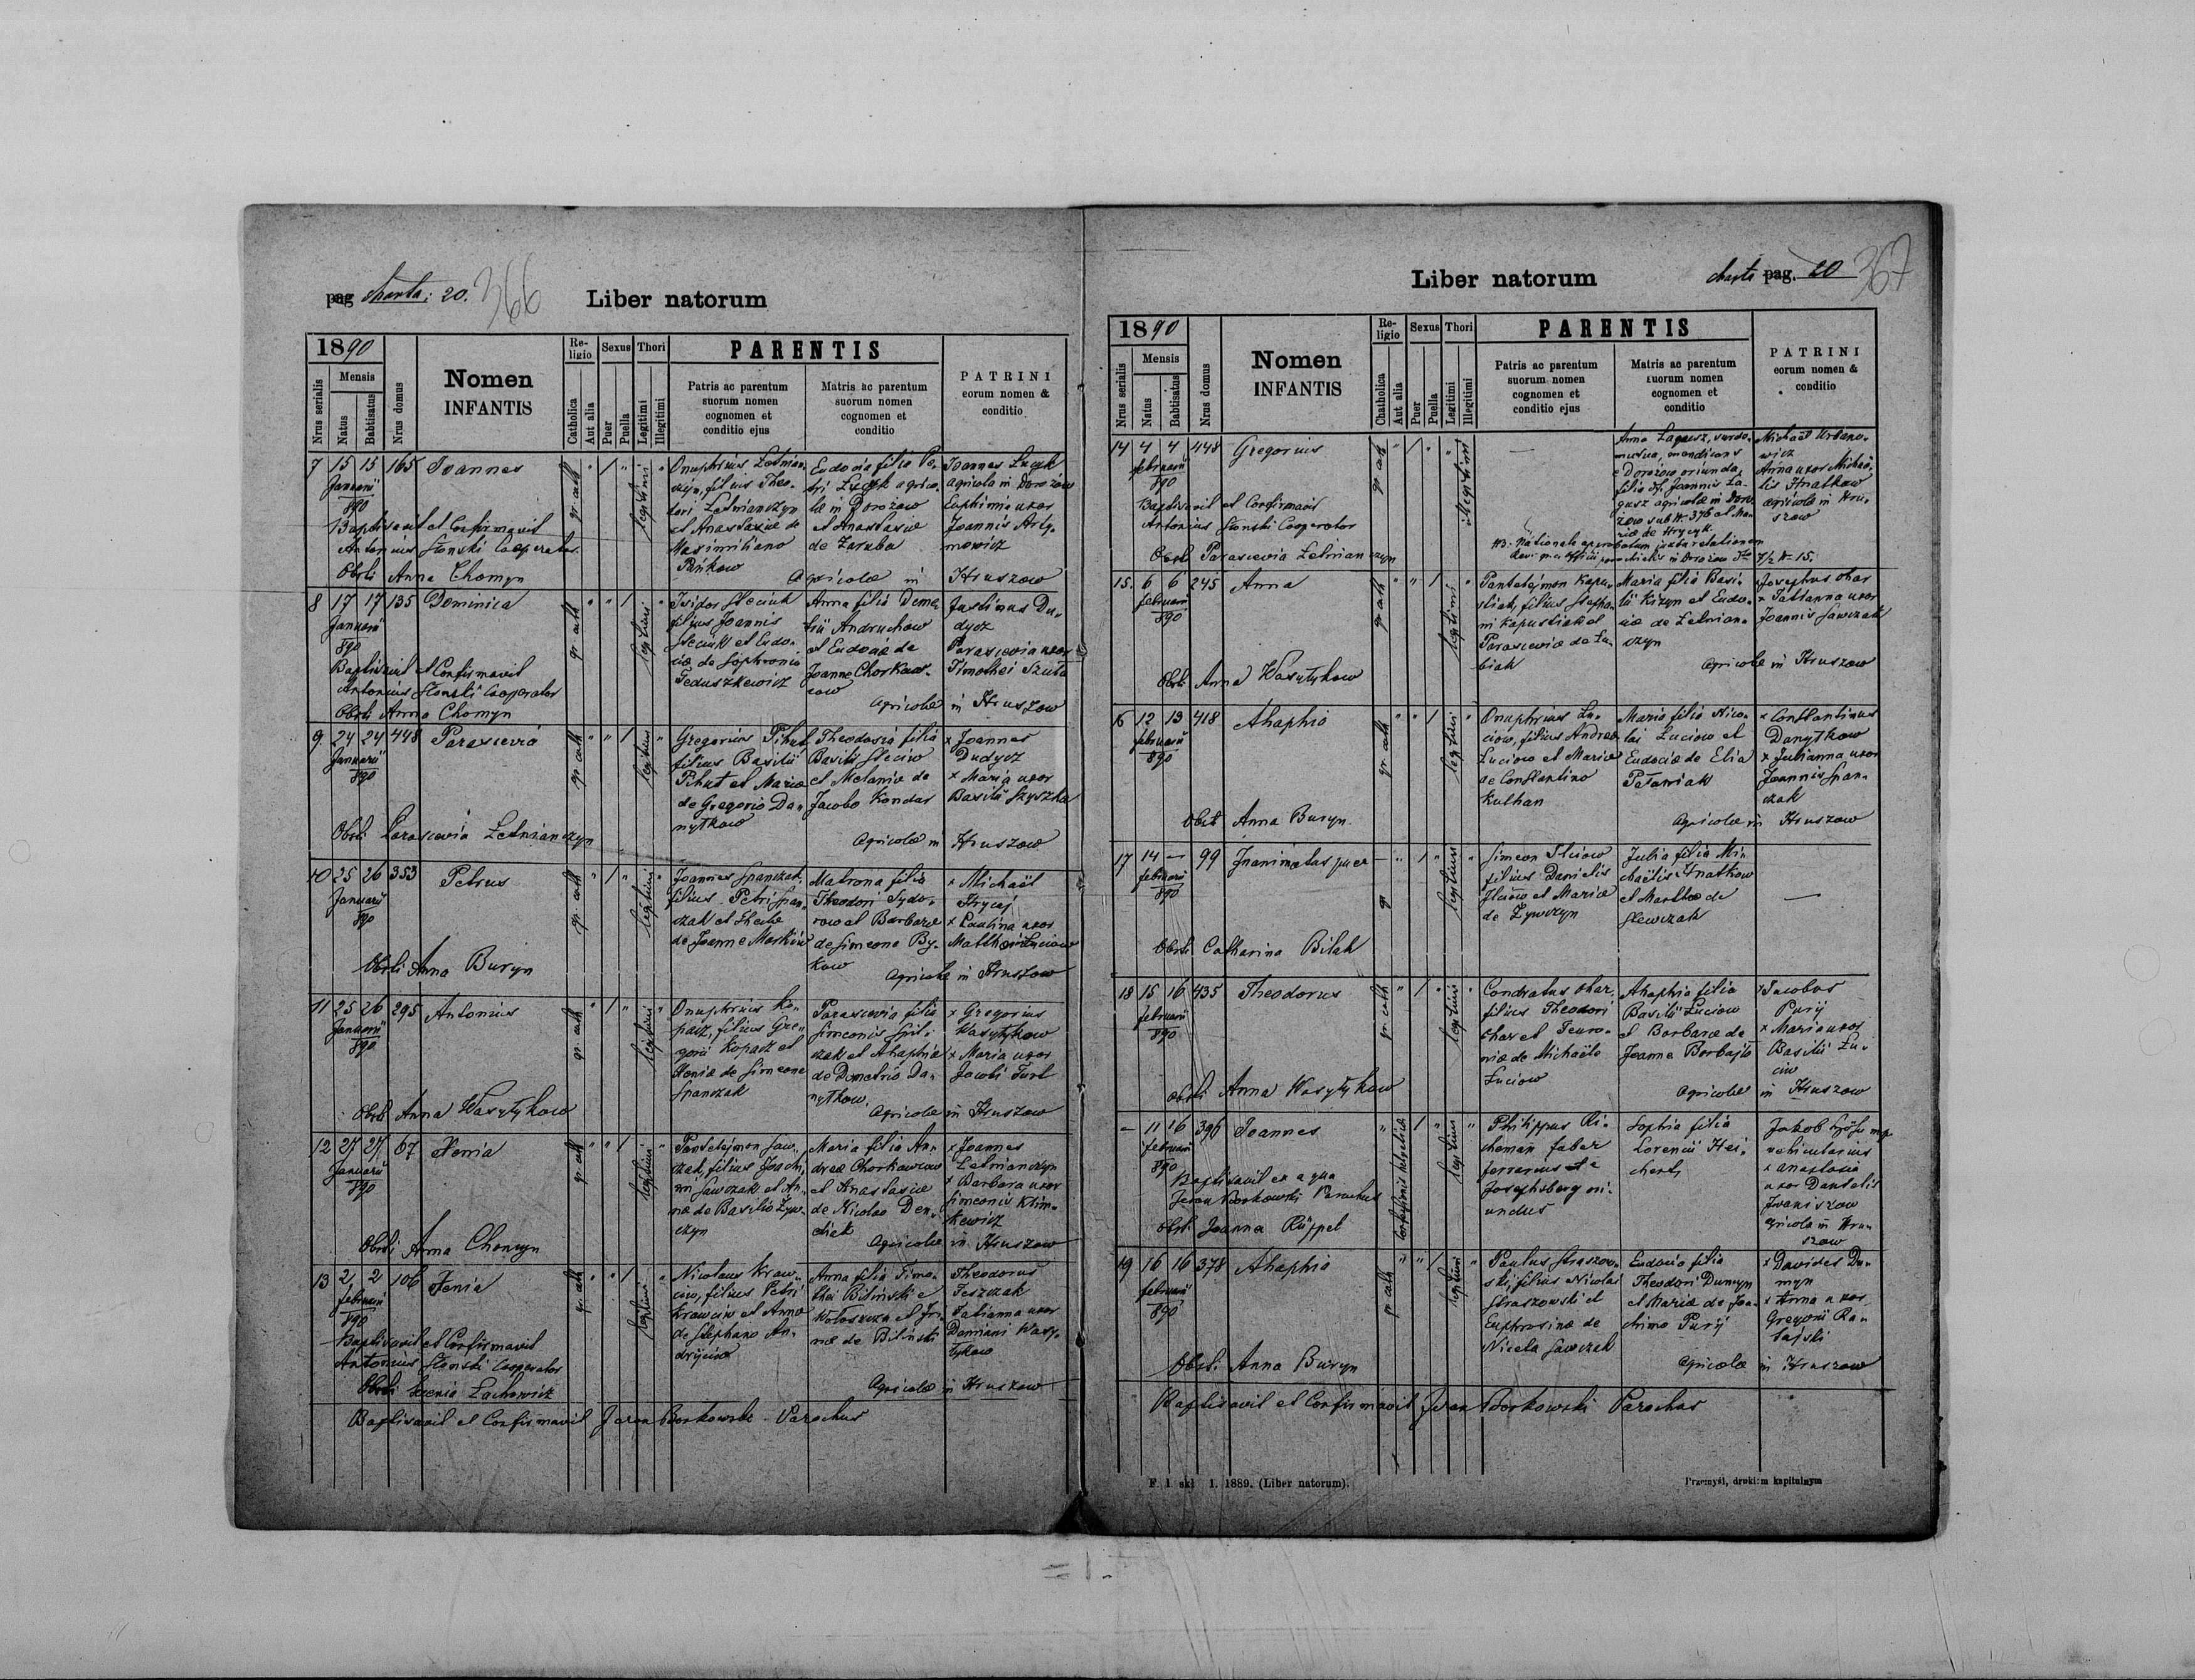 pag charta: 20. 366
Liber natorum
1890
Nrus serialis
Mensis
Natus
Babtisatus
Nrus domus
Nomen
INFANTIS
Re-
ligio
Catholica
Aut alia
Sexus
Puer
Puella
Thori
Legitimi
Illegitimi
PARENTIS
Patris ac parentum
suorum nomen
cognomen et
conditio ejus
Matris ac parentum
suorum nomen
cognomen et
conditio
PATRINI
eorum nomen &
conditio
7 15 15 165 Joannes
Januarii
890
Baptisavit et Confirmavit
Antonius Slonski Cooperator
Obst: Anna Chomyn
gr. cath
legitimi
Onuphrius Letnian-
czyn, filius Theo-
dori Letnianczyn
et Anastasiae de
Maximiliano
Pańkow
Eudocia filia Pe-
tri Łuczk agrico-
lae in Dorożow
et Anastasiae
de Zaruba
Agricolae in
Joannes Łuczk
agricola in Dorożow
Euphimia uxor
Joannis Arty-
mowicz
Hruszow
8 17 17 135 Dominica
Januarii
890
Baptisavit et Confirmavit
Antonius Slonski Cooperator
Obst: Anna Chomyn
gr. cath
legitimi
Isidor Steciuk
filius Joannis
Steciuk et Eudo-
ciae de Sophronio
Feduszkewicz
Anna filia Deme-
trii Andruchow
et Eudociae de
Joanne Chorkaw-
cow
Agricolae in Hruszow
Justinus Du-
dycz
Parascevia uxor
Timothei Szuta
9 24 24 448 Parascevia
Januarii
890
Obst: Parascevia Letnianczyn
gr. cath
legitimi
Gregorius Pihut
filius Basilii
Pihut et Mariae
de Gregorio Da-
nytkow
Theodosia filia
Basilii Steciw
et Melaniae de
Jacobo Kondar
Agricolae in Hruszow
x Joannes
Dudycz
x Maria uxor
Basilii Szyszka
10 25 26 353 Petrus
Januarii
890
Obst: Anna Buryn
gr. cath
legitimi
Joannes Spanczak,
filius Petri Span-
czak et Theclae
de Joanne Maskiw
Matrona filia
Theodori Sydo-
row et Barbarae
de Simeone By-
kow
Agricolae in Hruszow
x Michaël
Hrycaj
x Paulina uxor
Matthaei Łuciow
11 25 26 295 Antonius
Januarii
890
Obst: Anna Wasyłykow
gr. cath
legitimi
Onuphrius Ko-
pacz, filius Gre-
gorii Kopacz et
Xeniae de Simeone
Spanczak
Parascevia filia
Simeonis Spil-
czak et Ahaphiae
de Demetrio Da-
nytkow
Agricolae in Hruszow
x Gregorius
Wasyłykow
x Maria uxor
Jacobi Turt
12 27 27 67 Xenia
Januarii
890
Obst: Anna Chomyn
gr. cath
legitimi
Panteleimon Saw-
czak, filius Joach-
mi Sawczak et An-
nae de Basilio Żyw-
czyn
Maria filia An-
dreae Chorkawciow
et Anastasiae
de Nicolao Den-
diak
Agricolae in Hruszow
x Joannes
Letnianczyn
x Barbara uxor
Simeonis Klim-
kewicz
13 2 2 106 Xenia
februarii
890
Baptisavit et Confirmavit
Antonius Slonski Cooperator
Obst: Xenia Lachowicz
gr. cath
legitimi
Nicolaus Kraw-
ciw, filius Petri
Krawciw et Annae
de Stephano An-
dryciw
Anna filia Timo-
thei Biliński e
Wołoszcza et Iri-
nae de Biliński
Agricolae in Hruszow
Theodorus
Teszczak
Tatianna uxor
Damiani Wasy-
łykow
Baptisavit et Confirmavit Jeron Borkowski Parochus
Liber natorum
charta pag. 20 367
1890
Nrus serialis
Mensis
Natus
Babtisatus
Nrus domus
Nomen
INFANTIS
Re-
ligio
Chatholica
Aut alia
Sexus
Puer
Puella
Thori
Legitimi
Illegitimi
PARENTIS
Patris ac parentum
suorum nomen
cognomen et
conditio ejus
Matris ac parentum
suorum nomen
cognomen et
conditio
PATRINI
eorum nomen &
conditio
14 4 4 448 Gregorius
februarii
890
Baptisavit et Confirmavit
Antonius Slonski Cooperator
Obst: Parascevia Letnianczyn
gr. cath
illegitimi
Anna Łagusz, surdo-
muta, mendicans
e Dorożow oriunda,
filia Joannis Ła-
gusz agricolae in Doro-
żow sub N. 376 et Ma-
riae de Hrycyk.
Michaël Urbano-
wicz
Anna uxor Michaë-
lis Hnatkow
agricolae in Hru-
szow
15. 6 6 245 Anna
februarii
890
Obst: Anna Wasyłykow
gr. cath
legitimi
Panteleimon Kapu-
stiak, filius Stepha-
ni Kapustiak et
Parasceviae de Łu-
biak
Maria filia Basi-
lii Kizyn et Eudo-
ciae de Letnian-
czyn
Agricolae in Hruszow
x Josephus Char
x Tatianna uxor
Joannis Sawczak
16 12 13 418 Ahaphia
februarii
890
Obst: Anna Buryn.
gr. cath
legitimi
Onuphrius Łu-
ciow, filius Andreae
Łuciow et Mariae
de Constantino
Kulhan
Maria filia Nico-
lai Łuciow et
Eudociae de Elia
Pałaniak
Agricolae in Hruszow
x Constantinus
Danytkow
x Julianna uxor
Joannis Span-
czak
17 14 — 99 Inanimatus puer
februarii
890
Obst: Catharina Bilak
gr
legitimi
Simeon Ilciow
filius Danielis
Ilciow et Mariae
de Żywczyn
Julia filia Mi-
chaëlis Hnatkow
et Marthae de
Stewczak
18 15 16 435 Theodorus
februarii
890
Obst: Anna Wasyłykow
gr. cath
legitimi
Condratus Char,
filius Theodori
Char et Feuro-
niae de Michaële
Łuciow
Ahaphia filia
Basilii Łuciow
et Barbarae de
Joanne Borbajło
Agricolae in Hruszow
x Jacobus
Purij
x Maria uxor
Basilii Łu-
ciw
— 11 16 396 Joannes
februarii
890
Baptisavit ex aqua
Jeron Borkowski Parochus
Obst: Joanna Rüppel
legitimi
Philippus Ri-
cheman faber
ferrarius e
Josephsberg ori-
undus
Sophia filia
Lorencii Hei-
chert,
Jakob
vehicularius
x Anastasia
uxor Danielis
Iwaniszow
agricola in Hru-
szow
19 16 16 378 Ahaphia
februarii
890
Obst: Anna Buryn
gr. cath
legitimi
Paulus Straszow-
ski, filius Nicolai
Straszowski et
Euphrosinae de
Niceta Sawczak
Eudocia filia
Theodori Dumyn
et Mariae de Joa-
chimo Purij
Agricolae in Hruszow
x Davides Du-
myn
x Anna uxor
Gregorii Ra-
tajski
Baptisavit et Confirmavit Jeron Borkowski Parochus
F. 1 skł 1. 1889. (Liber natorum).
Przemyśl, drukiem kapitulnym